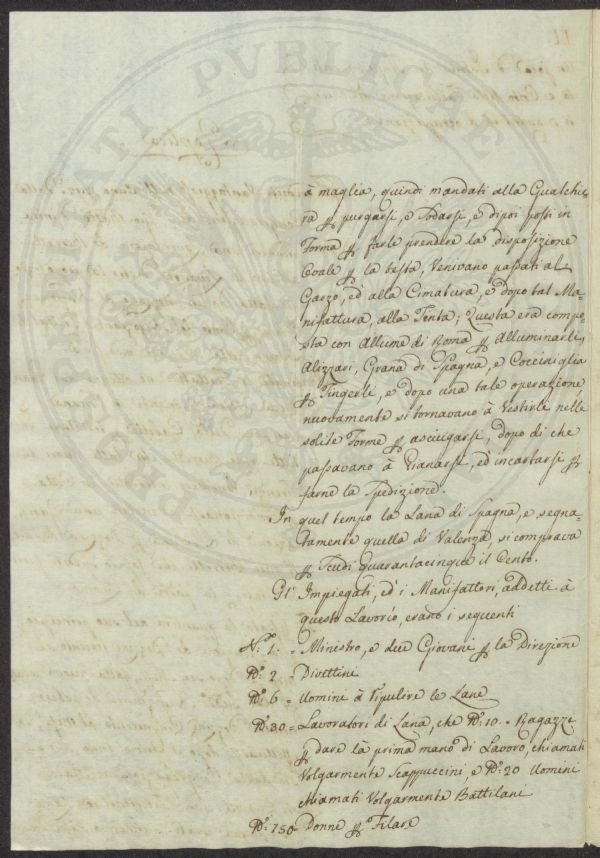 à maglia, quindi mandati alla Gualchie
ra ꝑ purgarsi, e Sodarsi, e dipoi posti in
Forma ꝑ farle prendere la disposizione
Ovale ꝑ la testa, Venivano passati al
Garzo, ed' alla Cimatura, e dopo tal Ma=
nifattura, alla Tinta; Questa era compo
sta con Allume di Roma ꝑ Alluminarli,
Alizzari, Grana di Spagna, e Cocciniglia
ꝑ Tingerli, e dopo una tale operazione
nuovamente si tornavano à Vestirli nelle
solite Forme ꝑ asciugarsi, dopo di che
passavano à Pianarsi, ed incartarsi ꝑ
farne la Spedizione.
In quel tempo la Lana di Spagna, e segna=
tamente quella di Valenza, si comprava
ꝑ Scudi Quarantacinque il Cento.
Gl' Impiegati, ed' i Manifattori, addetti à
questo Lavorio, erano i seguenti
N.º 1. = Ministro, e due Giovani ꝑ la Direzione
Dº. 2 = Divettini
Dº. 6 = Uomini à ripulire le Lane
Dº. 30 = Lavoratori di Lana, che Dº. 10. = Ragazzi
ꝑ dare la prima mano di Lavoro, chiamati
Volgarmente Scappuccini, e Dº. 20 Uomini
chiamati Volgarmente Battilani
Dº. 150 = Donne ꝑ Filare
PROSPERITATI PVBLICAE